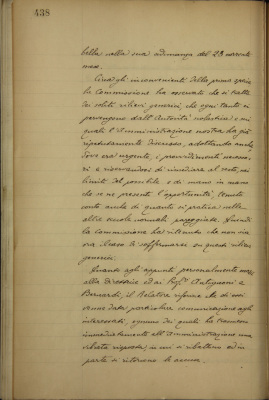 438
bella nella sua adunanza del 28 corrente
mese.
Circa gli inconvenienti della prima specie
la Commissione ha osservato che si tratta
dei soliti rilievi generici che ogni tanto ci
pervengono dall'Autorità scolastica e sui
quali l'Amministrazione nostra ha già
ripetutamente discusso, adottando anche
dove era urgente, i provvedimenti necessa-
ri e riservandosi di rimediare al resto, nei
limiti del possibile e di mano in mano
che se ne presenti l'opportunità, tenuto
conto anche di quanto si pratica nelle
altre scuole normali pareggiate. Quindi
la Commissione ha ritenuto che non sia
ora il caso di soffermarsi su questi rilievi
generici.
Quanto agli appunti personalmente mossi
alla Direttrice ed ai Prof.ri e
Bernardi, il Relatore riferisce che di essi
venne data particolare comunicazione agli
interessati, ognuno dei quali ha trasmesso
immediatamente all'Amministrazione una
risposta, in cui si ribattono ed in
parte si ritorcono le accuse.